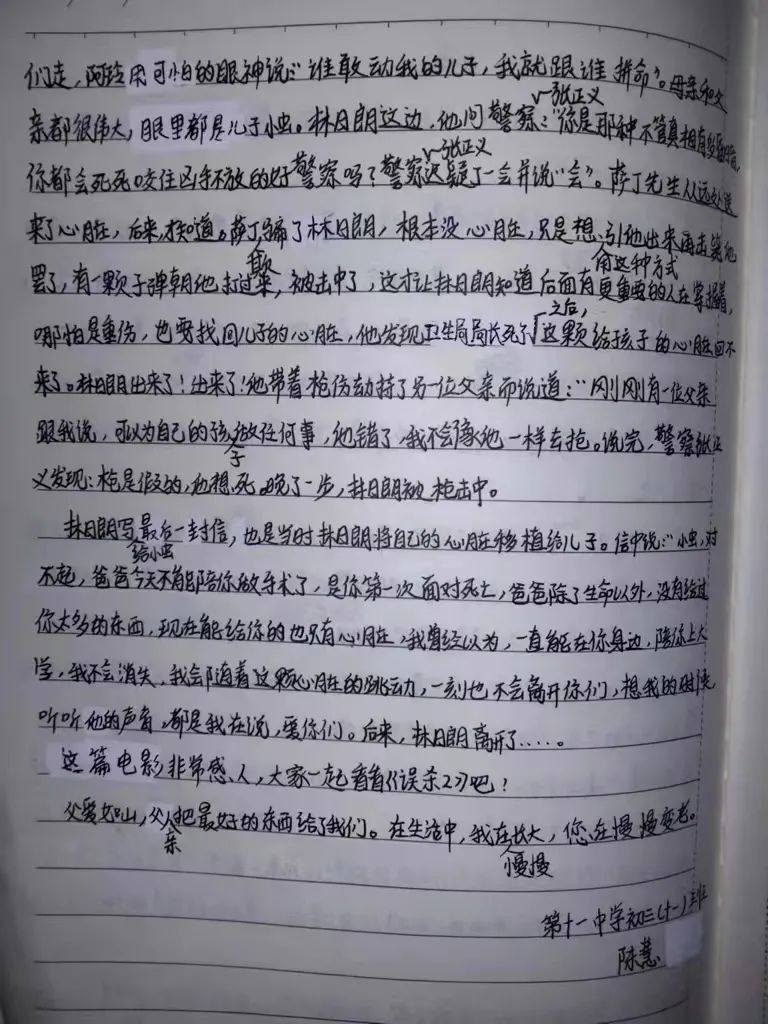 们走，阿玲用可怕的眼神说：“谁敢动我的儿子，我就跟谁拼命”。母亲和父
亲都很伟大，眼里都是儿子小虫。林日朗这边，他问警察：“你是那种不管真相有多
√张正义
你都会死死咬住凶手不放的好警察吗？警察迟疑了一会并说“会”。萨丁先生从远处送
√张正义
来了心脏，后来，才知道。萨丁骗了林日朗，根本没心脏，只是想引他出来再击毙他
用这种方式
罢了，有一颗子弹朝他打过来，被击中了，这才让林日朗知道后面有更重要的人在掌握着，
哪怕是重伤，也要找回儿子的心脏，他发现卫生局局长死了√这颗给孩子的心脏回不
之后，
来了。林日朗出来了！出来了！他带着枪伤劫持了另一位父亲而说道：“刚刚有一位父亲
跟我说，可以为自己的孩做任何事，他错了，我不会像他一样去抢。说完，警察张正
子
义发现：枪是假的，他想死，晚了一步，林日朗被枪击中。
林日朗写最后一封信，也是当时林日朗将自己的心脏移植给儿子。信中说：“小虫，对
给小虫
不起，爸爸今天不能陪你做手术了，是你第一次面对死亡，爸爸除了生命以外，没有给过
你太多的东西，现在能给你的也只有心脏，我曾经以为，一直能在你身边，陪你上大
学，我不会消失，我会随着这颗心脏的跳动，一刻也不会离开你们，想我的时候，
听听他的声音，都是我在说，爱你们。后来，林日朗离开了.....。
这篇电影非常感人，大家一起看看《误杀2》吧！
父爱如山，父把最好的东西给了我们。在生活中，我在长大，您在慢慢变老。
亲
慢慢
第十一中学初三（十一）班
陈慧